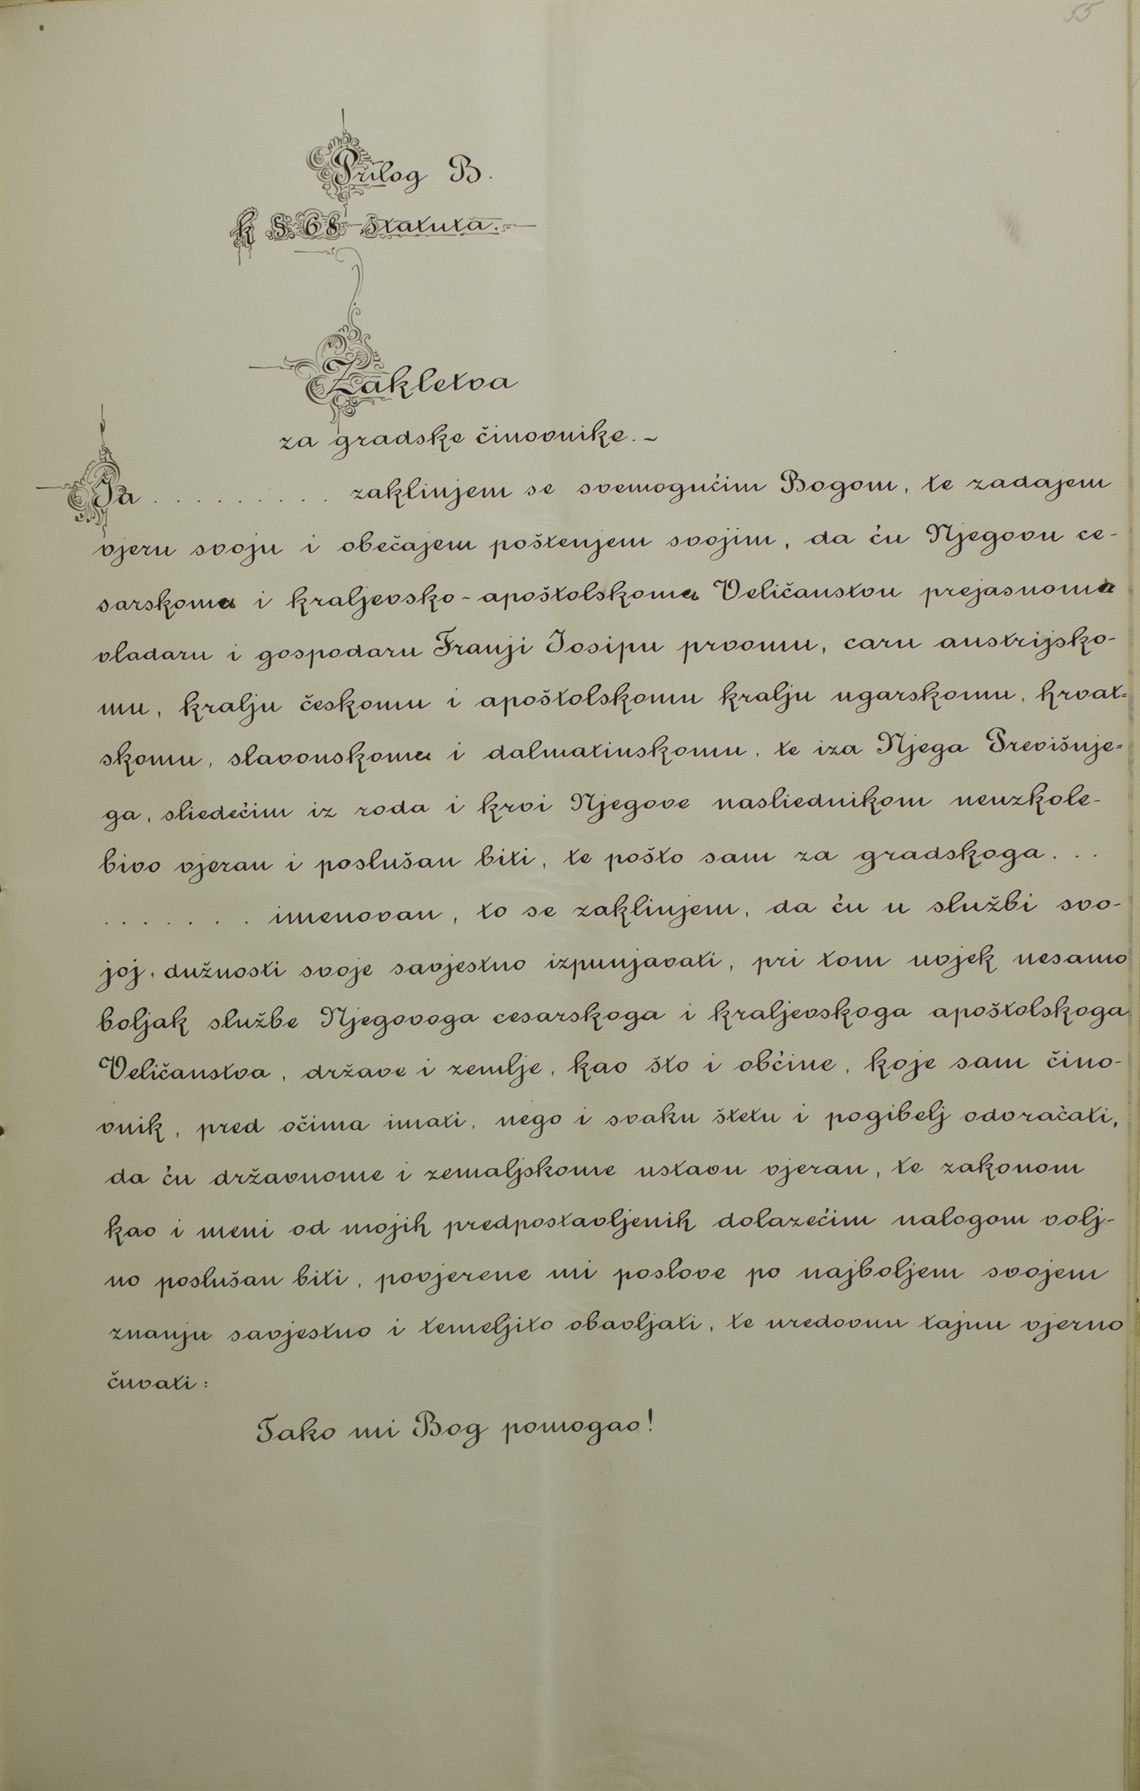 55
Prilog B.
k § 68 štatuta.
Zakletva
za gradske činovnike. ~
Ja . . . . . . . . . . zaklinjem se svemogućim Bogom, te zadajem
vjeru svoju i obečajem poštenjem svojim, da ću Njegovu ce-
sarskomu i kraljevsko-apoštolskomu Veličanstvu prejasnomu
vladaru i gospodaru Franji Josipu prvomu, caru austrijsko-
mu, kralju českomu i apoštolskomu kralju ugarskomu, hrvat-
skomu, slavonskomu i dalmatinskomu, te iza Njega Previšnje-
ga, sliedećim iz roda i krvi Njegove nasliednikom neuzkole-
bivo vjeran i poslušan biti, te pošto sam za gradskoga . . .
. . . . . . . imenovan, to se zaklinjem, da ću u službi svo-
joj, dužnosti svoje savjestno izpunjavati, pri tom uvjek nesamo
boljak službe Njegovoga cesarskoga i kraljevskoga apoštolskoga
Veličanstva, države i zemlje, kao što i obćine, koje sam čino-
vnik, pred očima imati, nego i svaku štetu i pogibelj odvraćati,
da ću državnome i zemaljskome ustavu vjeran, te zakonom
kao i meni od mojih predpostavljenih dolazećim nalogom volj-
no poslušan biti, povjerene mi poslove po najboljem svojem
znanju savjestno i temeljito obavljati, te uredovnu tajnu vjerno
čuvati:
Tako mi Bog pomogao!